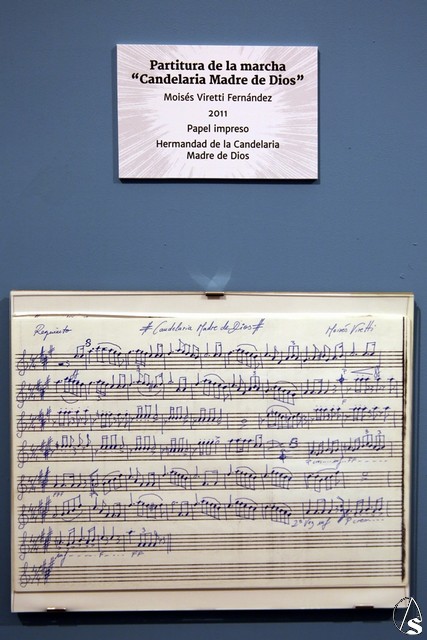 Partitura de la marcha
“Candelaria Madre de Dios”
Moisés Viretti Fernández
2011
Papel impreso
Hermandad de la Candelaria
Madre de Dios
Requinto # Candelaria Madre de Dios # Moisés Viretti